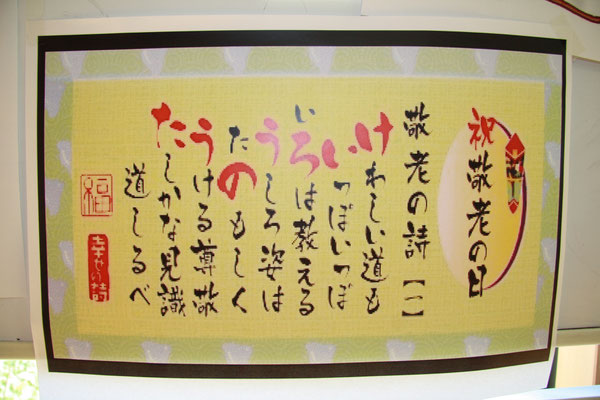 祝敬老の日
敬老の詩【一】
けわしい道も
いっぽいっぽ
いろは教える
うしろ姿は
たのもしく
うける尊敬
たしかな見識
道しるべ
福
幸せの詩